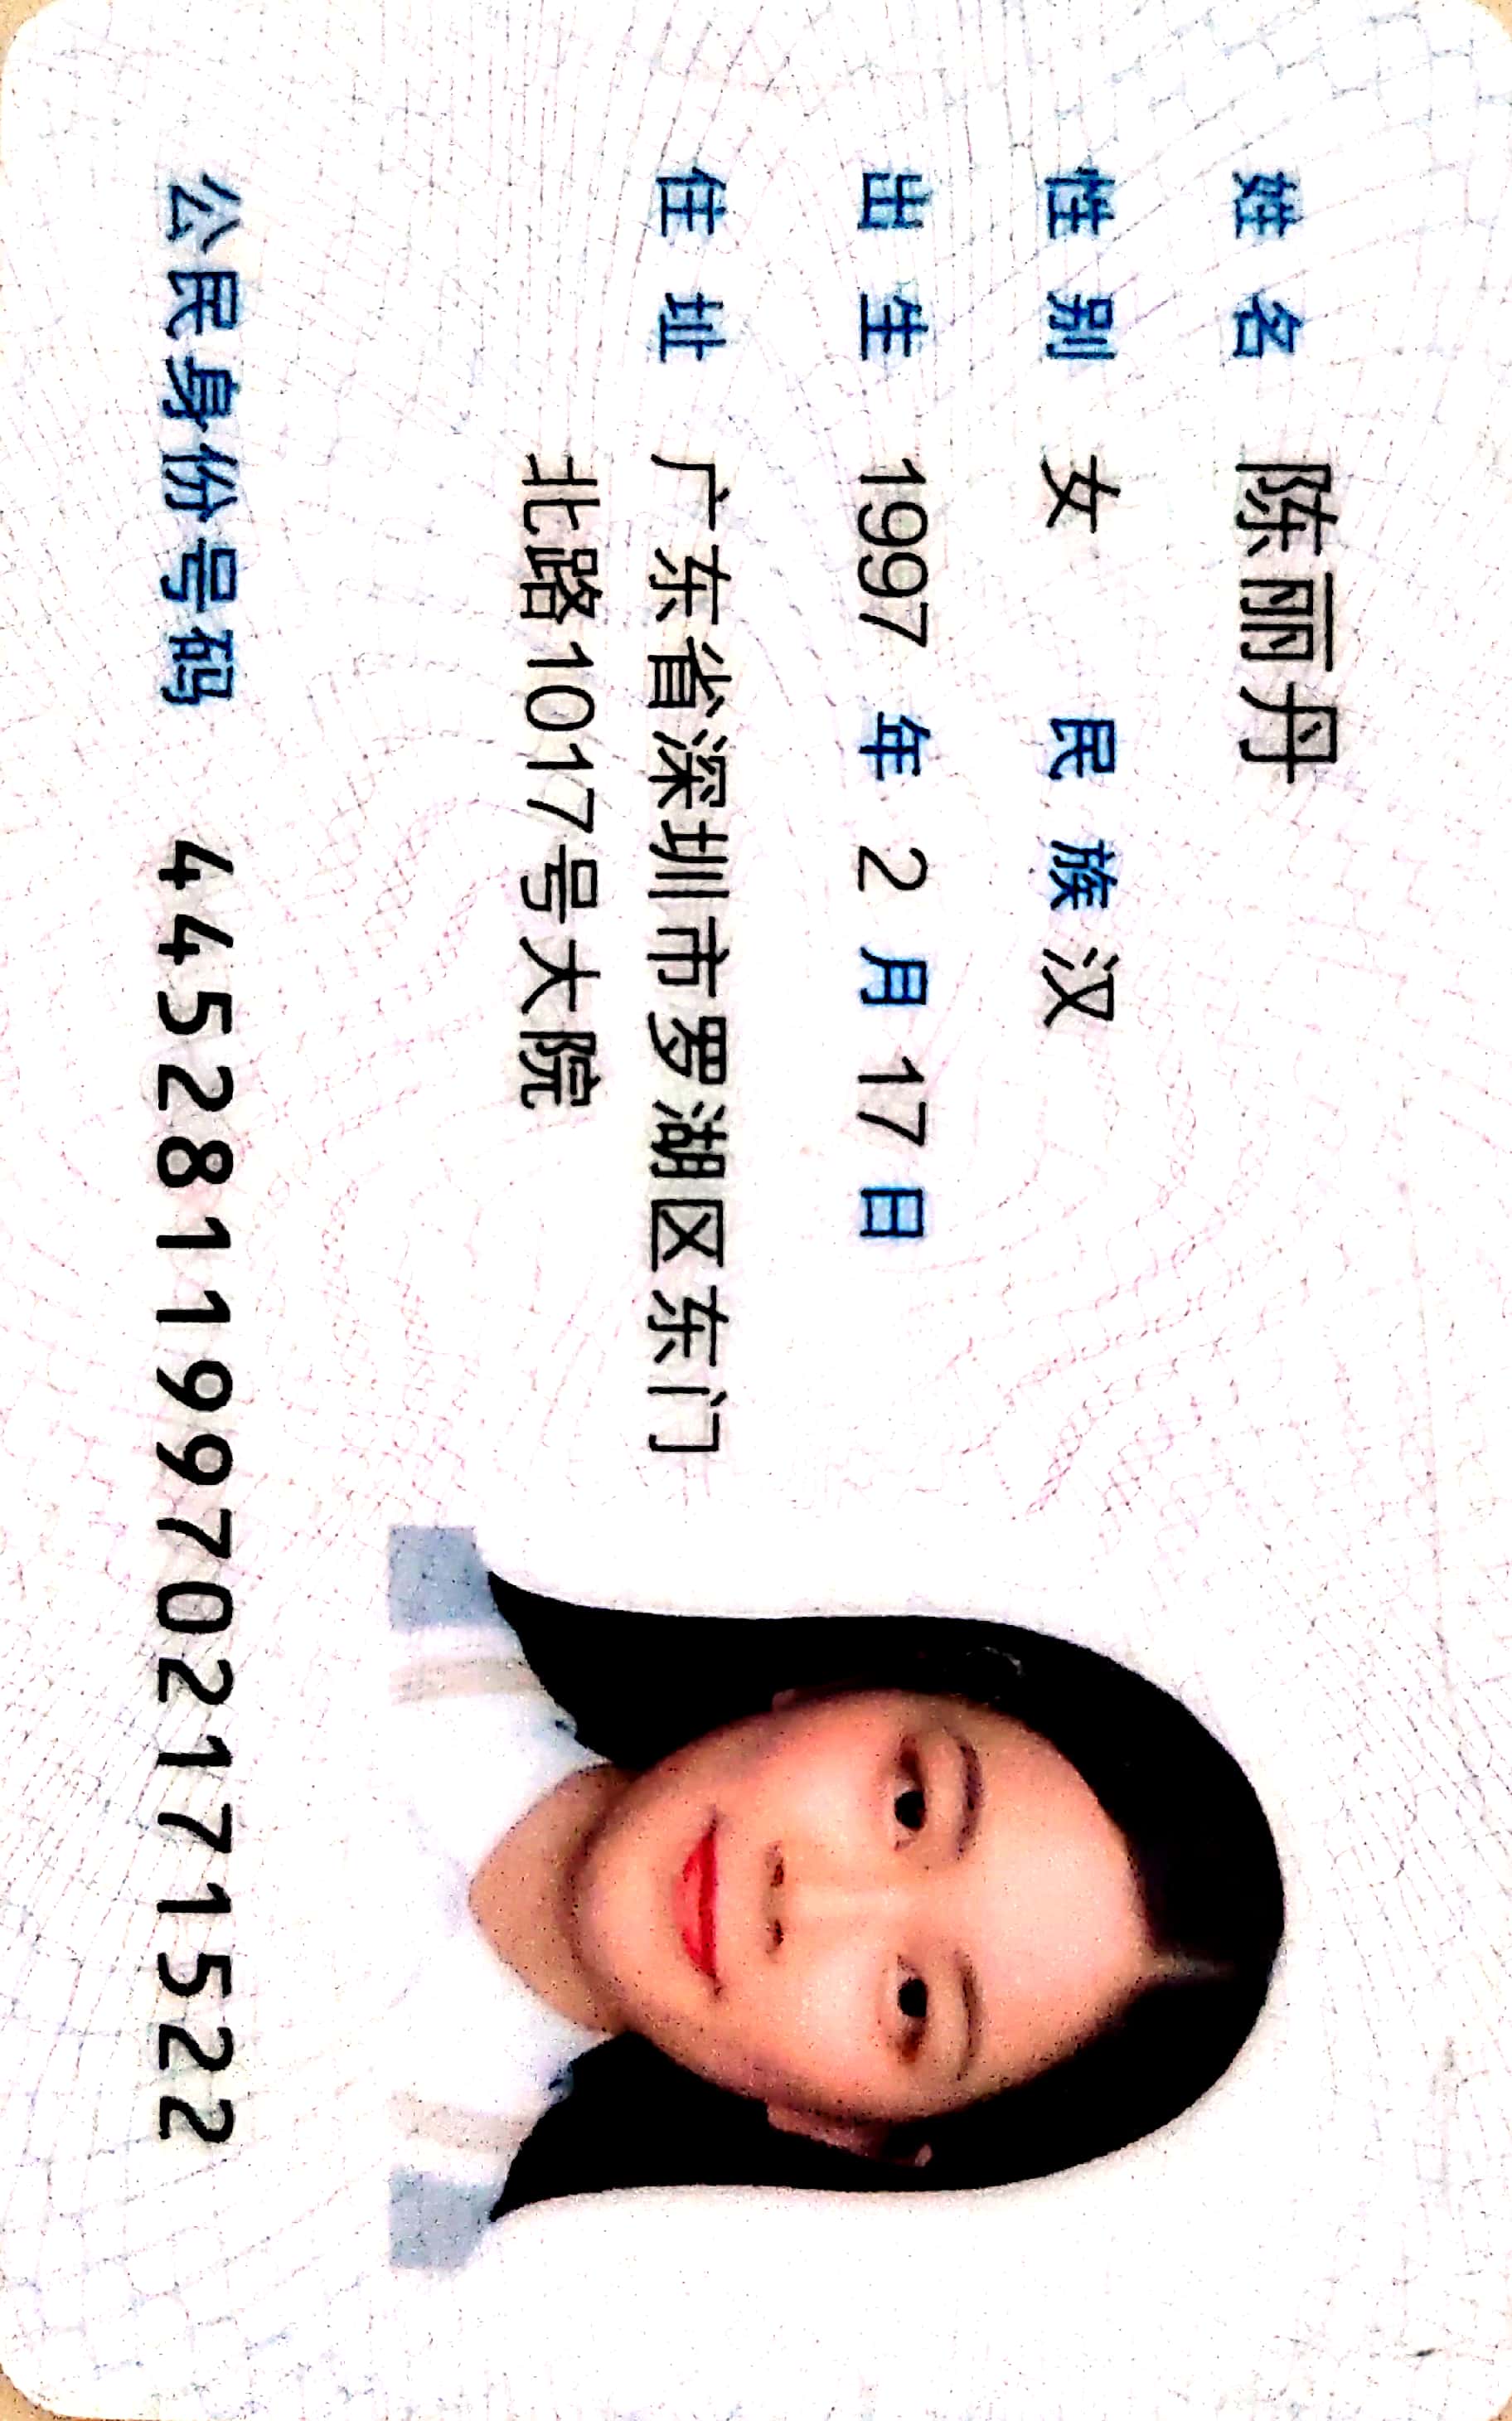 姓名 陈丽丹
性别 女 民族 汉
出生 1997 年 2 月 17 日
住址 广东省深圳市罗湖区东门
北路1017号大院
公民身份号码 445281199702171522